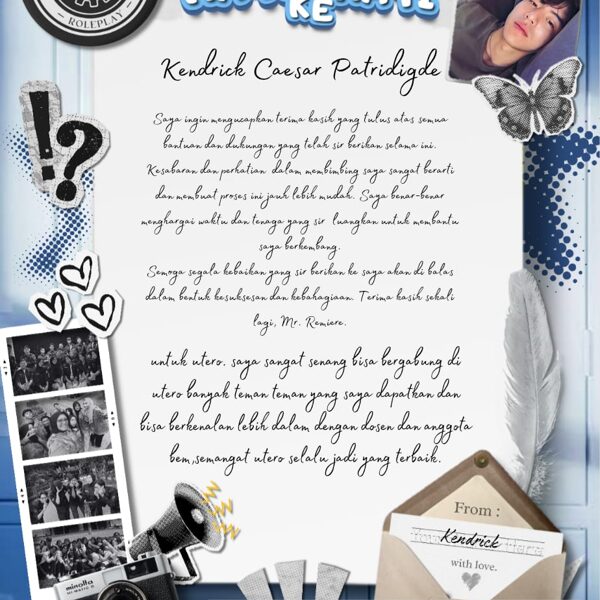 ROLEPLAY
KE
Kendrick Caesar Patridigde
Saya ingin mengucapkan terima kasih yang tulus atas semua
bantuan dan dukungan yang telah sir berikan selama ini.
Kesabaran dan perhatian dalam membimbing saya sangat berarti
dan membuat proses ini jauh lebih mudah. Saya benar-benar
menghargai waktu dan tenaga yang sir luangkan untuk membantu
saya berkembang.
Semoga segala kebaikan yang sir berikan ke saya akan di balas
dalam bentuk kesuksesan dan kebahagiaan. Terima kasih sekali
lagi, Mr. Remiere.
untuk utero. saya sangat senang bisa bergabung di
utero banyak teman teman yang saya dapatkan dan
bisa berkenalan lebih dalam dengan dosen dan anggota
bem,semangat utero selalu jadi yang terbaik.
!?
From :
Kendrick
with love.
minolta
HI-MATIC G